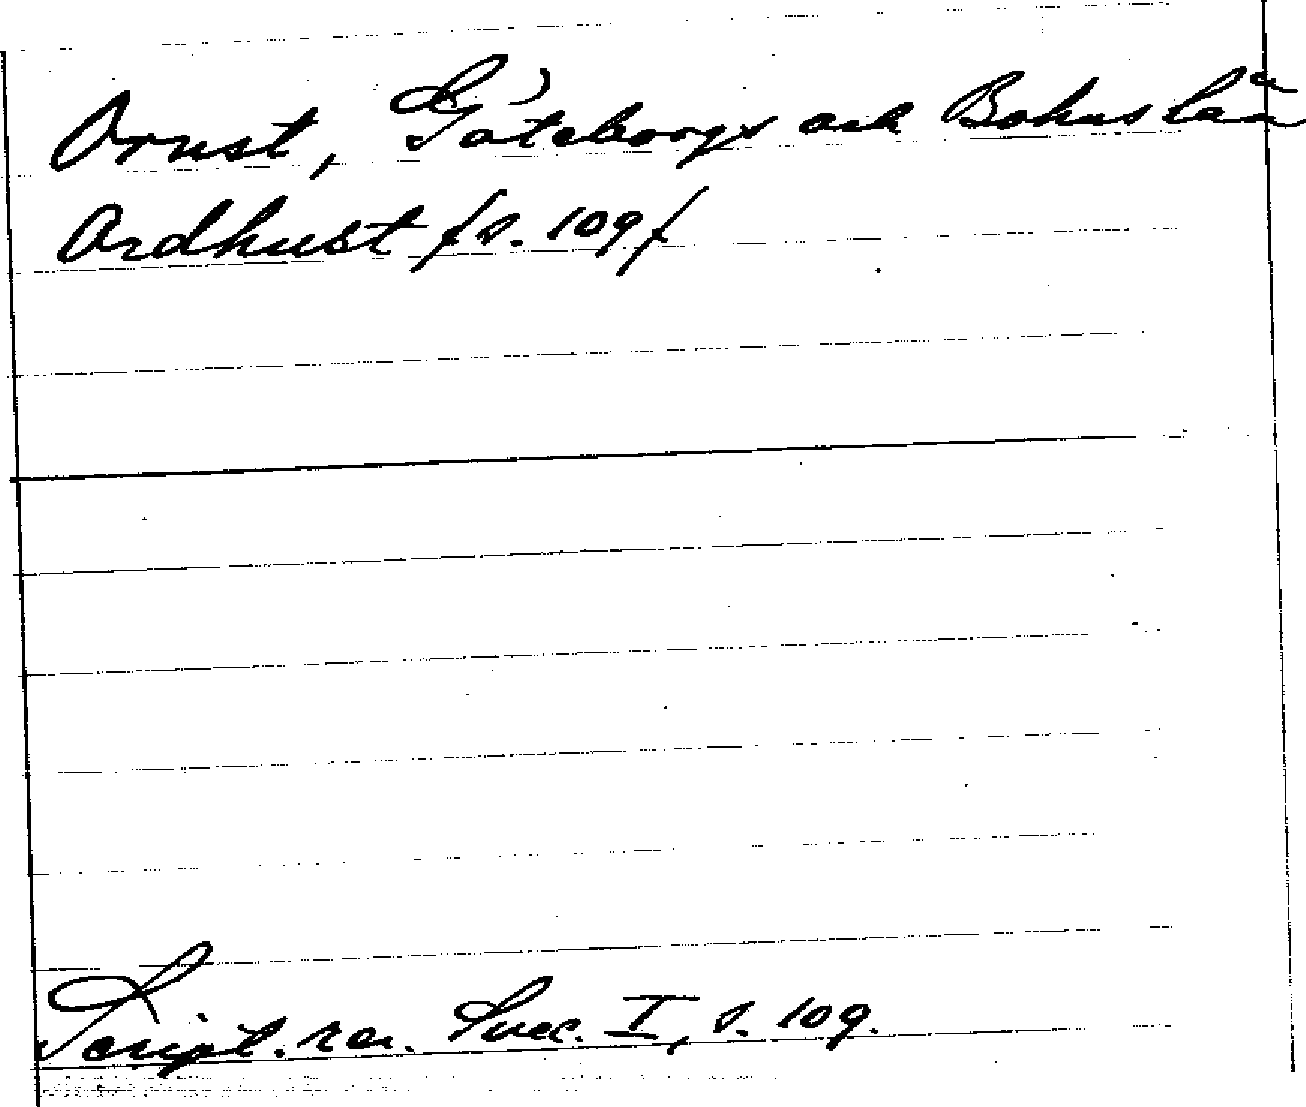 Orust, Göteborgs och Bohuslän
Ordhust /s. 109/
Script. rer. Svec. I, s. 109.